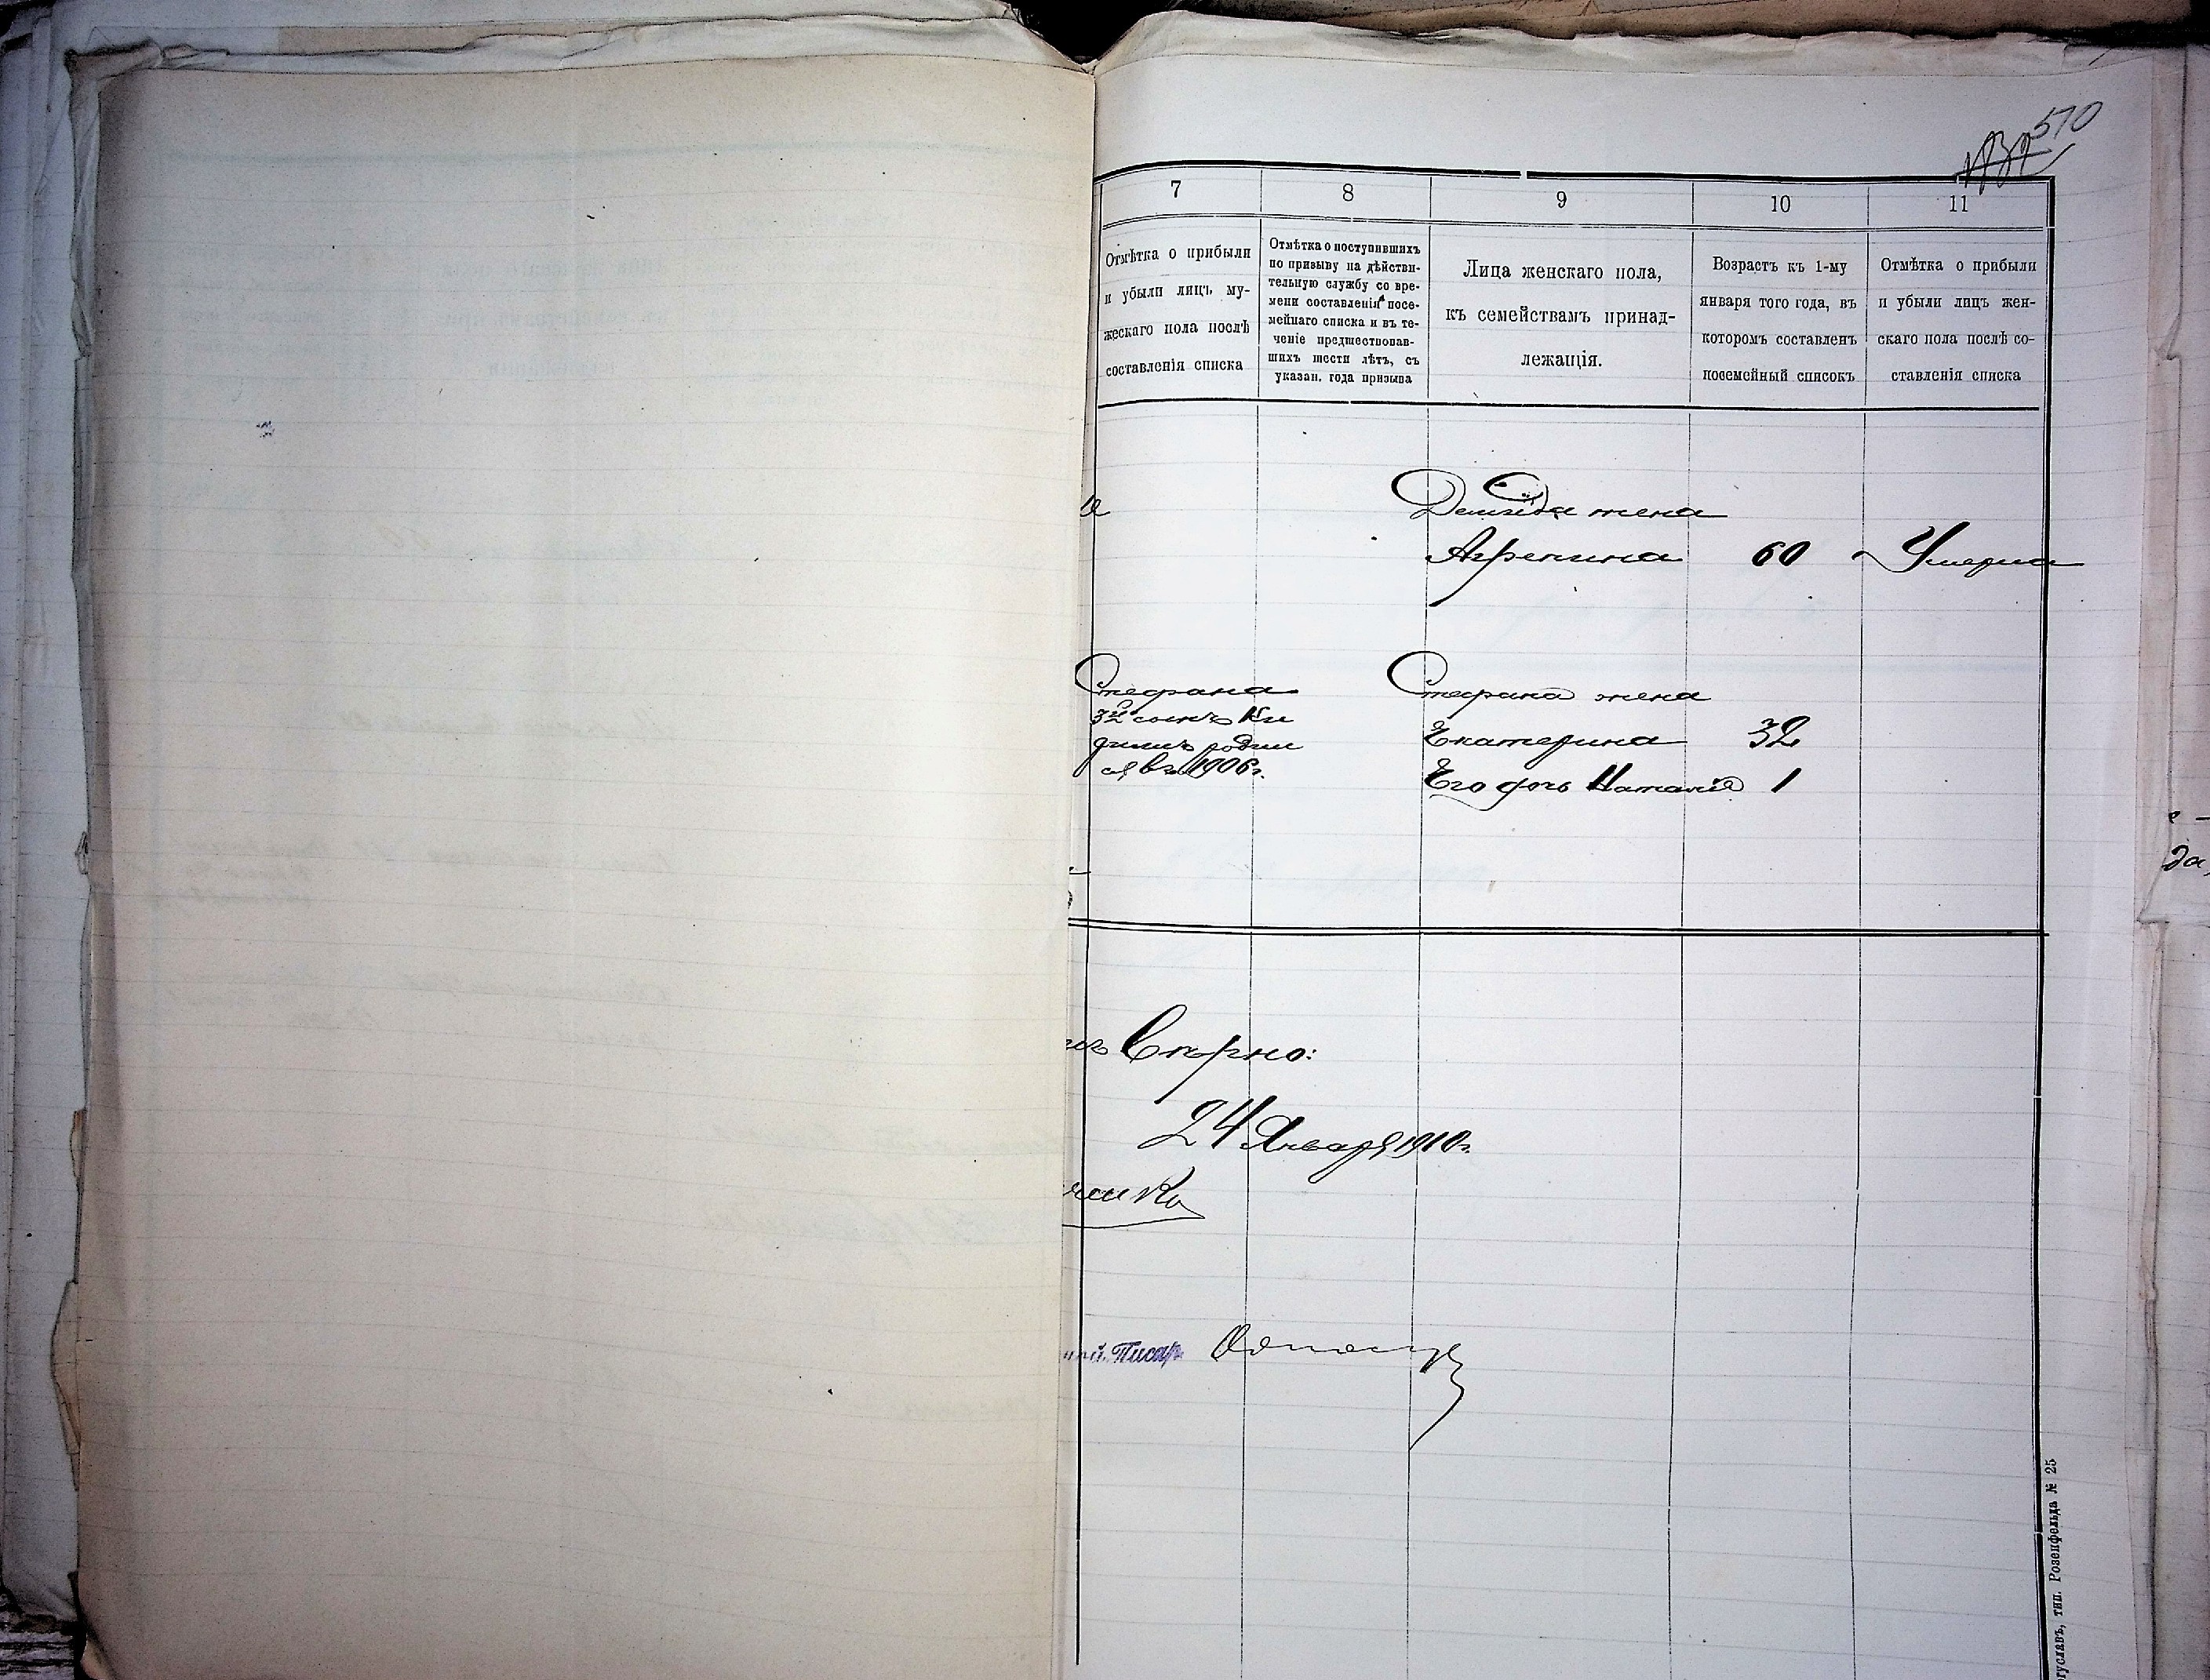 570
7
8
9
10
11
Отмѣтка о прибыли
и убыли лицъ му-
жескаго пола послѣ
составленія списка
Отмѣтка о поступившихъ
по призыву на дѣйстви-
тельную службу со вре-
мени составленія посе-
мейнаго списка и въ те-
ченіе предшествовав-
шихъ шести лѣтъ, съ
указан. года призыва
Лица женскаго пола,
къ семействамъ принад-
лежащія.
Возрастъ къ 1-му
января того года, въ
которомъ составленъ
посемейный списокъ
Отмѣтка о прибыли
и убыли лицъ жен-
скаго пола послѣ со-
ставленія списка
жена
Агрепина 60 Умерла
Стефана
3й сынъ
родил
ся въ 1906г.
Стефана жена
Екатерина 32
Его дочь Наталія 1
Вѣрно:
24 Января 1910г.
Писар
гуславъ, тип. Розенфельда № 25